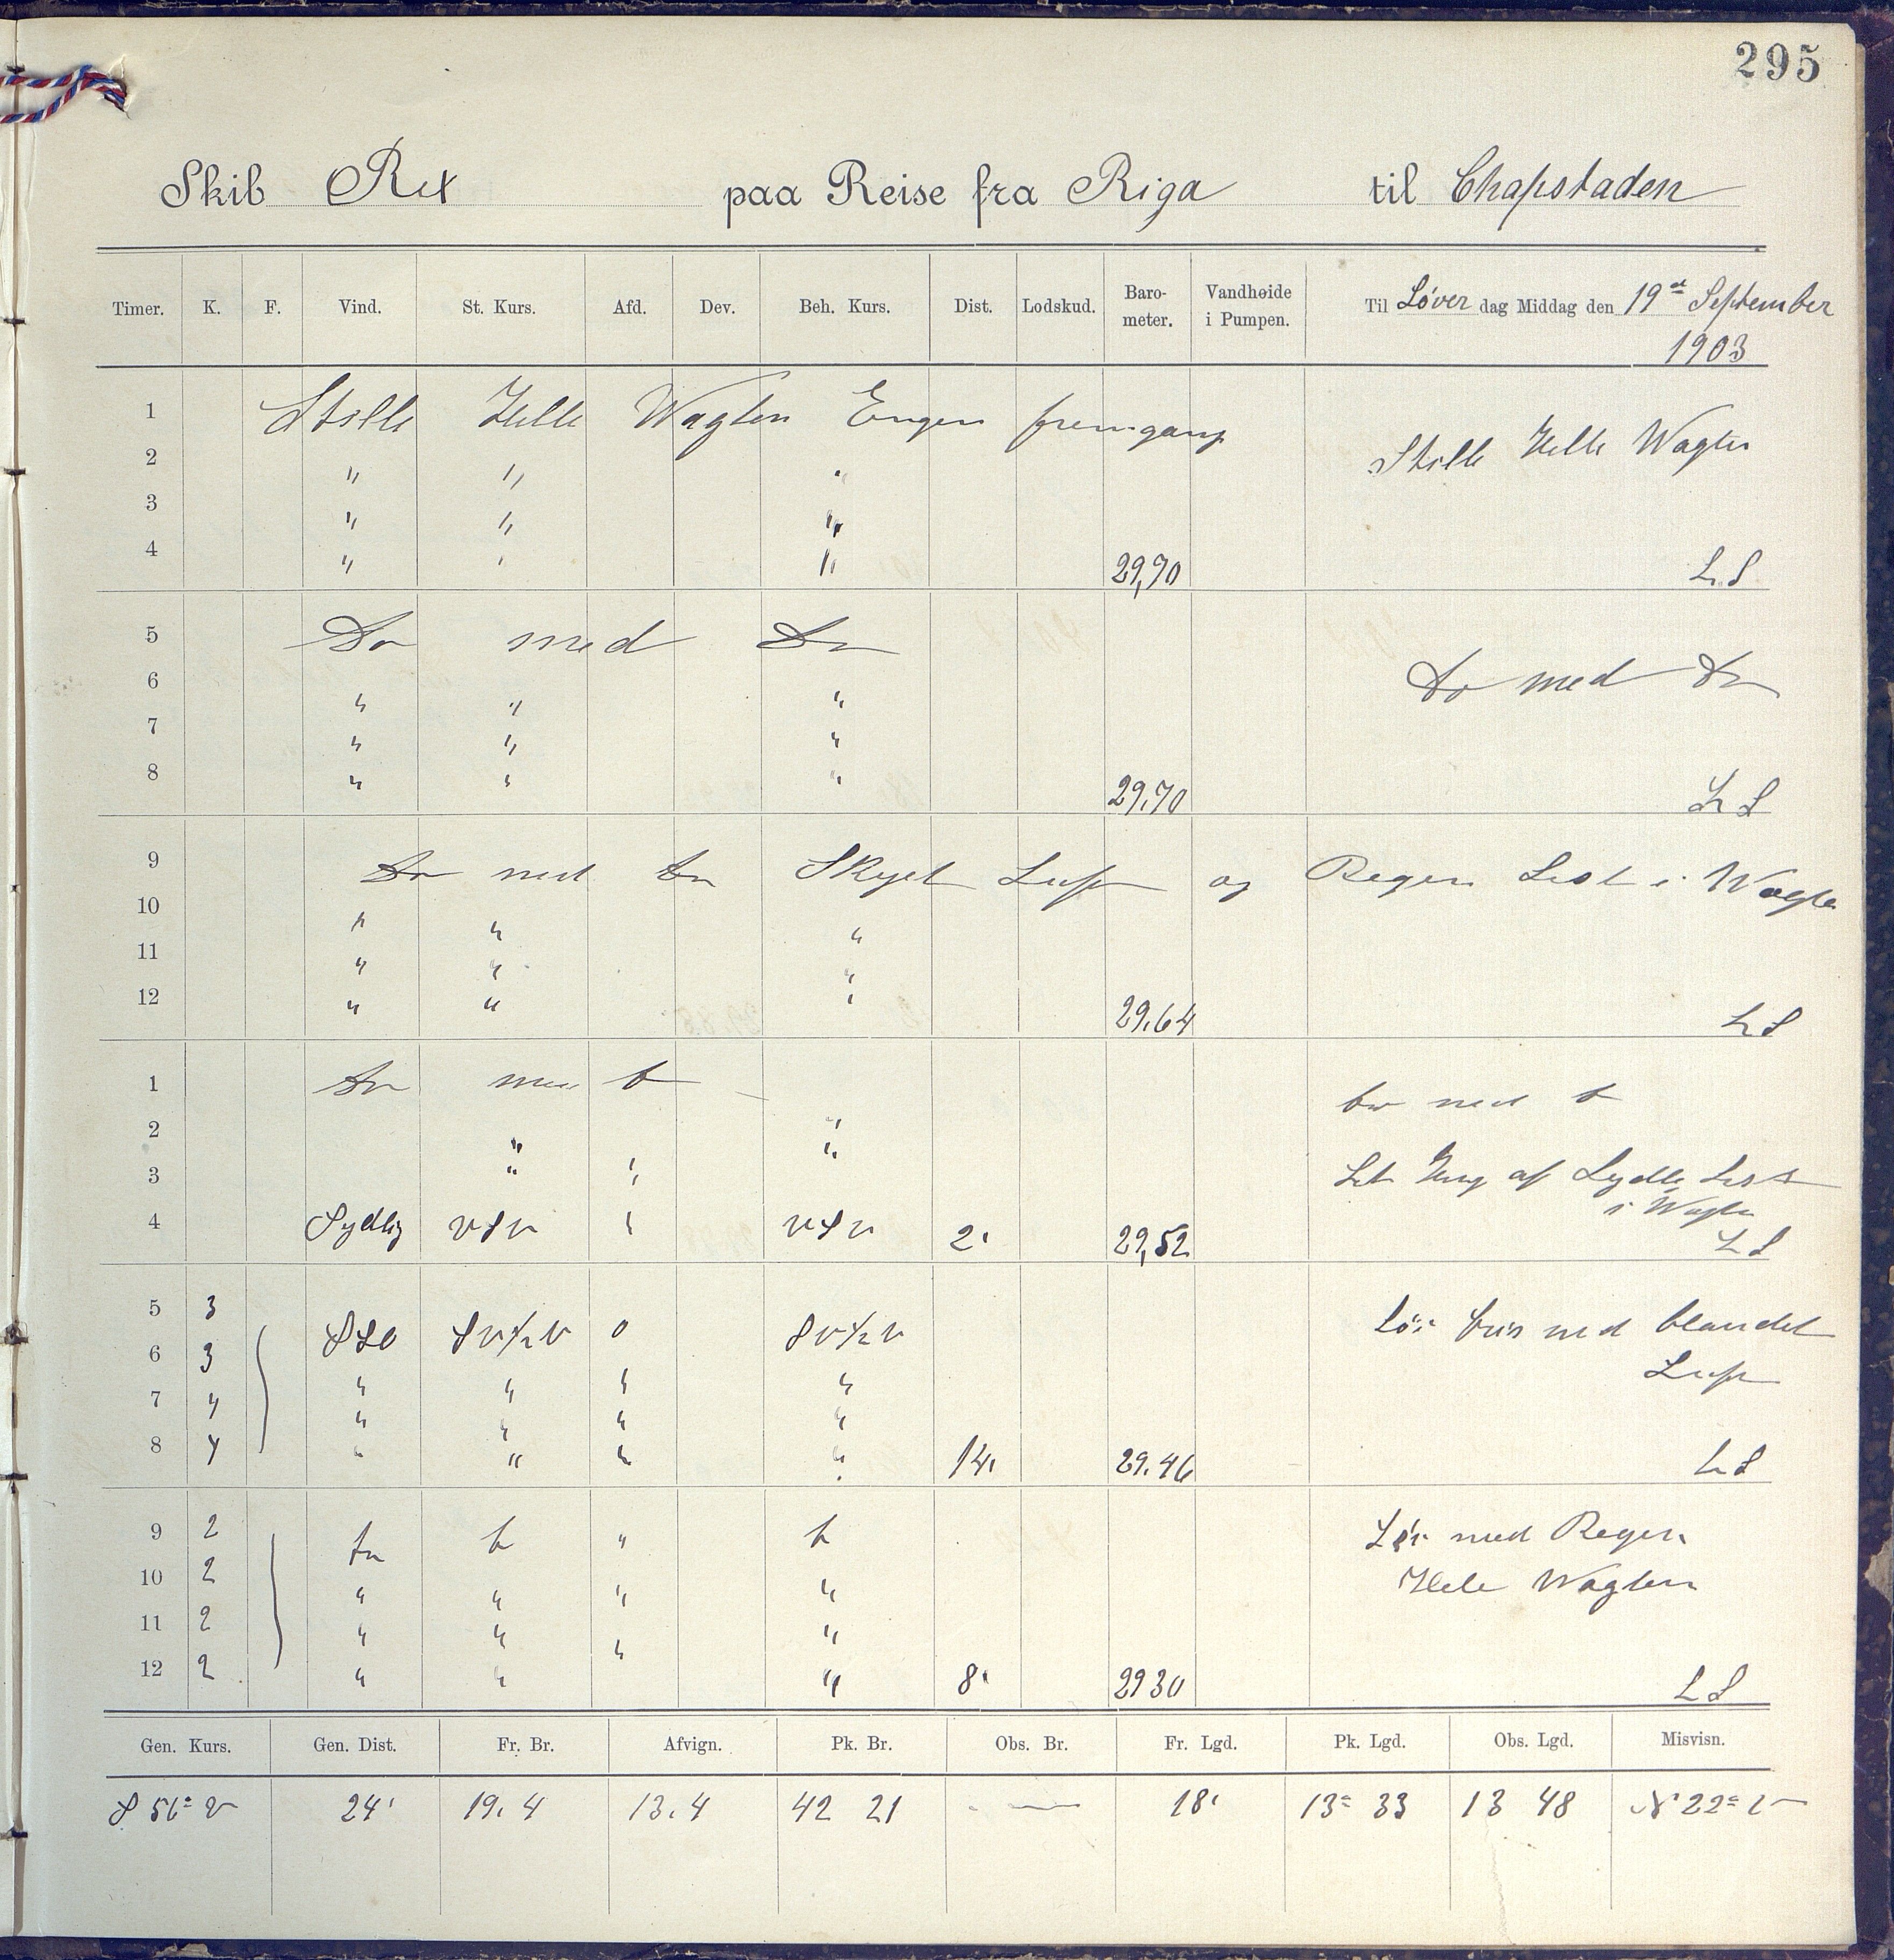 295
Skib Rex paa Reise fra Riga til Chapstaden
Timer. K. F. Vind. St. Kurs. Afd. Dev. Beh. Kurs. Dist. Lodskud. Baro-meter. Vandhøide i Pumpen. Til Løver dag Middag den 19de September
1903
1 Stille Helle Wagten Engen fremgang
Stille Helle Wagten
2 " " "
3 " " "
4 " " " 29,70 L S
5 Do med Do
Do med Do
6 " " "
7 " " "
8 " " " 29,70 L S
9 Do med Do Skyet Luft og Regen Lest i Wagten
10 " " "
11 " " "
12 " " " 29,64 L S
1 Do med D
Do med D
2 " "
3 " " "
af Sydlig
i Wagten
4 Sydlig VSV " VSV 2' 29,52 L S
5 3
SSO SV½V 0 SV½V
med blandet
6 3
Luft
7 4 " " " "
8 4 " " " " 14' 29.46 L S
9 2 Do D " D
Lør med Regen
10 2 " " " "
Hele Wagten
11 2 " " " "
12 2 " " " 8' 29 30 L S
Gen. Kurs. Gen. Dist. Fr. Br. Afvign. Pk. Br. Obs. Br. Fr. Lgd. Pk. Lgd. Obs. Lgd. Misvisn.
S 56° V 24' 19.4 13.4 42 21 — 18' 13° 33 13 48 N 22° V